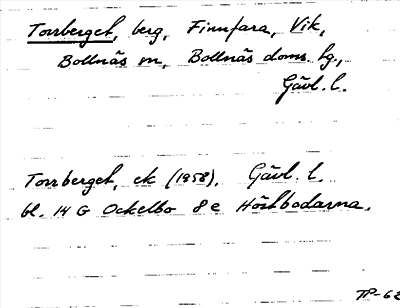 Torrberget, berg, Finnfara, Vik,
Bollnäs sn, Bollnäs doms. hg.,
Gävl. l.
Torrberget, ek (1958), Gävl. l.
bl. 14 G Ockelbo 8 e Höstbodarna.
TP-62